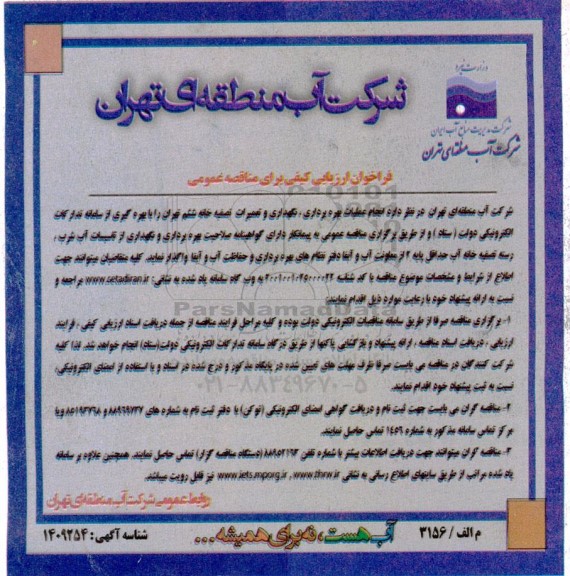 وزارت نیرو
شرکت مدیریت منابع آب ایران
شرکت آب منطقه‌ای تهران
شرکت آب منطقه‌ای تهران
فراخوان ارزیابی کیفی برای مناقصه عمومی
شرکت آب منطقه‌ای تهران در نظر دارد انجام عملیات بهره برداری، نگهداری و تعمیرات تصفیه خانه ششم تهران را با بهره گیری از سامانه تدارکات
الکترونیکی دولت (ستاد) و از طریق برگزاری مناقصه عمومی به پیمانکار دارای گواهینامه صلاحیت بهره برداری و نگهداری از تاسیسات آب شرب،
رسته تصفیه خانه آب حداقل پایه ۲ از معاونت آب و آبفا دفتر نظام های بهره برداری و حفاظت آب و آبفا واگذار نماید. کلیه متقاضیان میتوانند جهت
اطلاع از شرایط و مشخصات موضوع مناقصه با کد شناسه به وب گاه سامانه یاد شده به نشانی: www.setadiran.ir مراجعه و
نسبت به ارائه پیشنهاد خود با رعایت موارد ذیل اقدام نمایند:
۱- برگزاری مناقصه صرفا از طریق سامانه مناقصات الکترونیکی دولت بوده و کلیه مراحل فرایند مناقصه از جمله دریافت اسناد ارزیابی کیفی، فرایند
ارزیابی، دریافت اسناد مناقصه، ارائه پیشنهاد و بازگشایی پاکتها از طریق درگاه سامانه تدارکات الکترونیکی دولت(ستاد) انجام خواهد شد. لذا کلیه
شرکت کنندگان در مناقصه می بایست صرفا ظرف مهلت های تعیین شده در پایگاه مذکور و درج شده در اسناد و با استفاده از امضای الکترونیکی،
نسبت به ثبت پیشنهاد خود اقدام نمایند.
۲- مناقصه گران می بایست جهت ثبت نام و دریافت گواهی امضای الکترونیکی (توکن) با دفتر ثبت نام به شماره های ۸۸۹۶۹۷۳۷ و ۸۵۱۹۳۷۶۸ و یا
مرکز تماس سامانه مذکور به شماره ۱۴۵۶ تماس حاصل نمایند.
۳- مناقصه گران میتوانند جهت دریافت اطلاعات بیشتر با شماره تلفن ۸۸۹۵۲۱۹۳ (دستگاه مناقصه گزار) تماس حاصل نمایند. همچنین علاوه بر سامانه
یاد شده مراتب از طریق سایتهای اطلاع رسانی به نشانی www.iets.mporg.ir ، www.thrw.ir نیز قابل رویت میباشد.
روابط عمومی شرکت آب منطقه‌ای تهران
م الف / ۳۱۵۶
آب هست، نه برای همیشه...
شناسه آگهی: ۱۴۰۹۲۵۴
ParsNamadData
۰۲۱-۸۸۳۴۹۶۷۰-۵